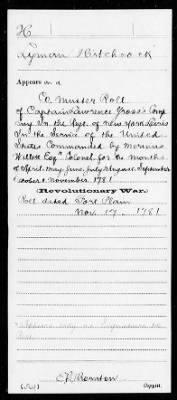 H
Lyman Hitchcock
Appears on a
Co. Muster Roll
of Captain Lawrence Gross's Comp
any In the Regt. of New York Levies
In the Service of the United
States Commanded by Marinus
Willett Esqr Colonel for the months
of April, May, June, July, August, September
October & November, 1781
(Revolutionary War.)
Roll dated Fort Plain
Nov. 17, 1781
Appears only on
Roll
Copyist.